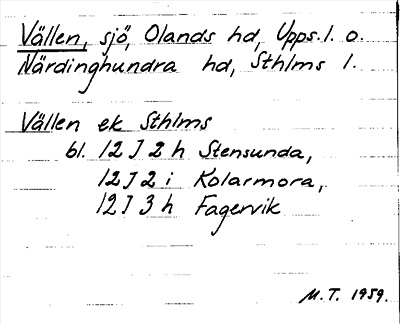 Vällen, sjö, Olands hd, Upps. l. o.
Närdinghundra hd, Sthlms l.
Vällen ek Sthlms
bl. 12 J 2 h Stensunda,
12 J 2 i Kolarmora,
12 J 3 h Fagervik
M.T. 1959.